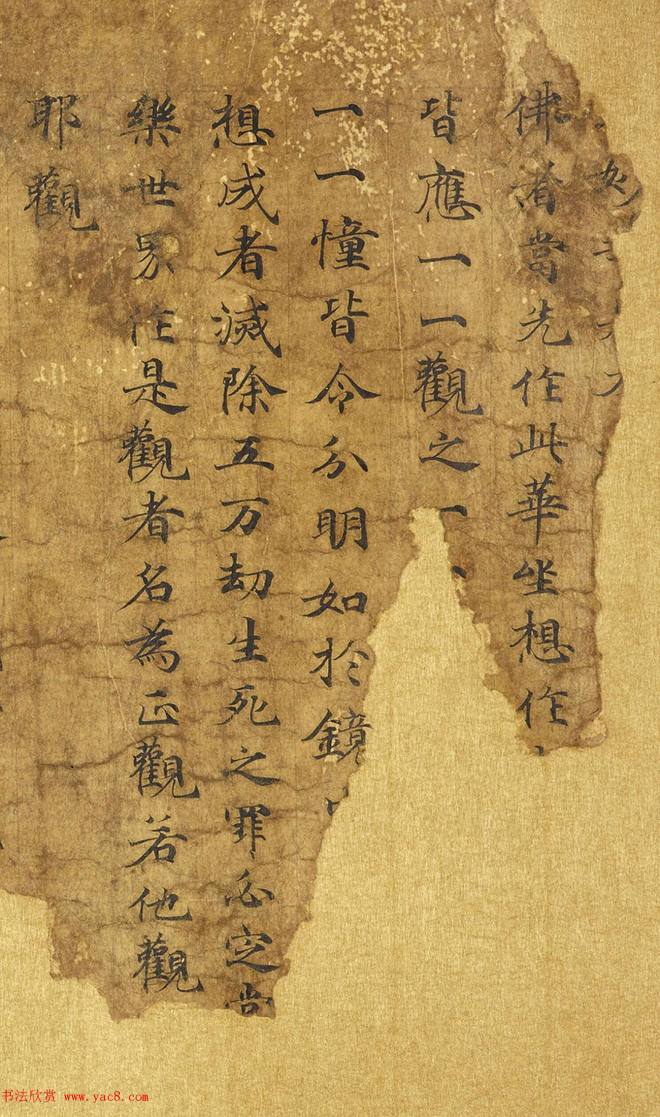 佛者當先作此華坐想作
皆應一一觀之一
一一憧皆令分明如於鏡
想成者滅除五万劫生死之罪必定
樂世界作是觀者名為正觀若他觀
耶觀
书法欣赏 www.yac8.com